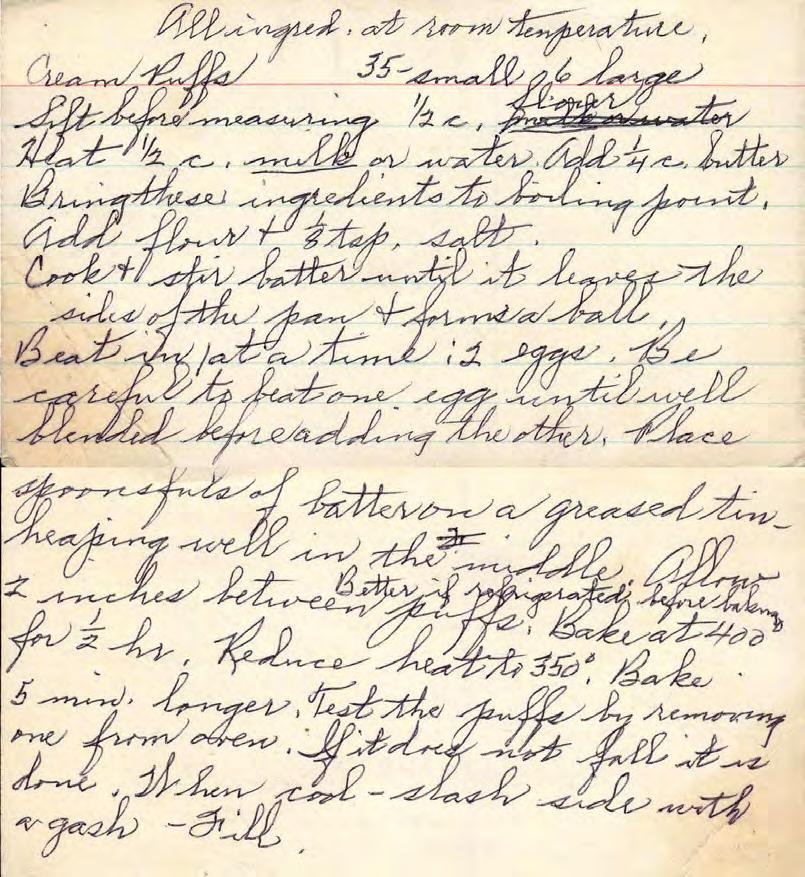 All ingred. at room temperature.
Cream Puffs 35-small or 6 large
Sift before measuring 1/2 c. flour
Heat 1/2 c. milk or water. Add 1/4 c. butter
Bring these ingredients to boiling point.
Add flour + 1/8 tsp. salt.
Cook + stir batter until it leaves the
sides of the pan + forms a ball.
Beat in 1 at a time : 2 eggs. Be
careful to beat one egg until well
blended before adding the other. Place
spoonsfuls of batter on a greased tin-
heaping well in the middle. Allow
2 inches between puffs. Better if refrigerated before baking
Bake at 400°
for 1/2 hr. Reduce heat to 350°. Bake
5 min. longer. Test the puffs by removing
one from oven. If it does not fall it is
done. When cool - slash side with
a gash - Fill.